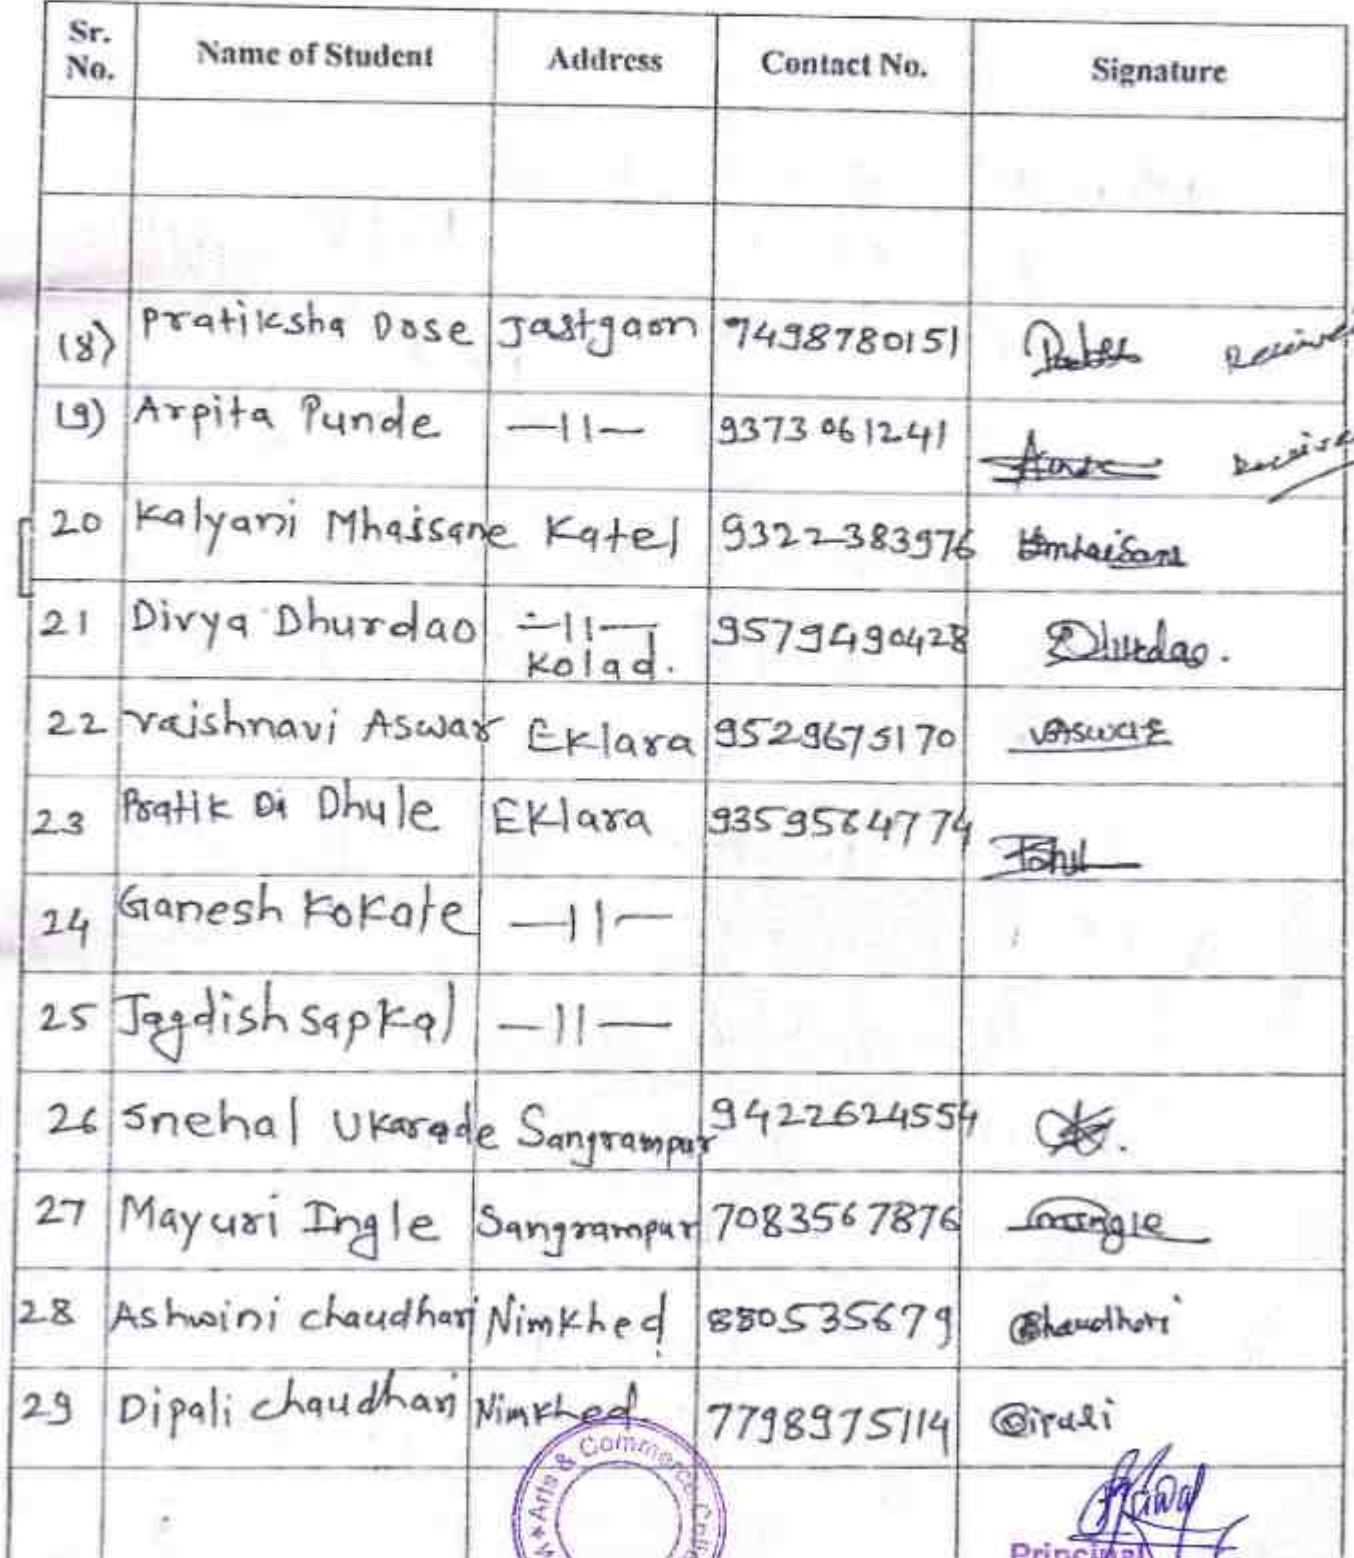 Sr. No. Name of Student Address Contact No. Signature
18) Pratiksha Dose Jastgaon 7498780151
19) Arpita Punde —11— 9373061241
20 Kalyani Mhaisane Katel 9322383976 Mhaisane
21 Divya Dhurdao —11— 9579490428 Dhurdao.
Kolad.
22 Vaishnavi Aswar Eklara 9529675170 VAswar
23 Pratik Di Dhule Eklara 9359564774
24 Ganesh Kokate —11—
25 Jagdish Sapkal —11—
26 Snehal Ukarade Sangrampur 9422624554
27 Mayuri Ingle Sangrampur 7083567876 mingle
28 Ashwini Chaudhari Nimkhed 880535679 Chaudhari
29 Dipali Chaudhari Nimkhed. 7798975114 Dipali
Arts & Commerce
Principal